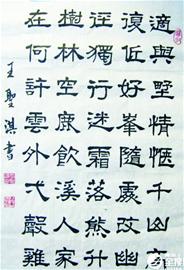 適與墅情愜千山高
復低好峯隨處改幽
徑獨行迷霜落熊升
樹林空鹿飲溪人家
在何許雲外弌聲雞
王聖淇書